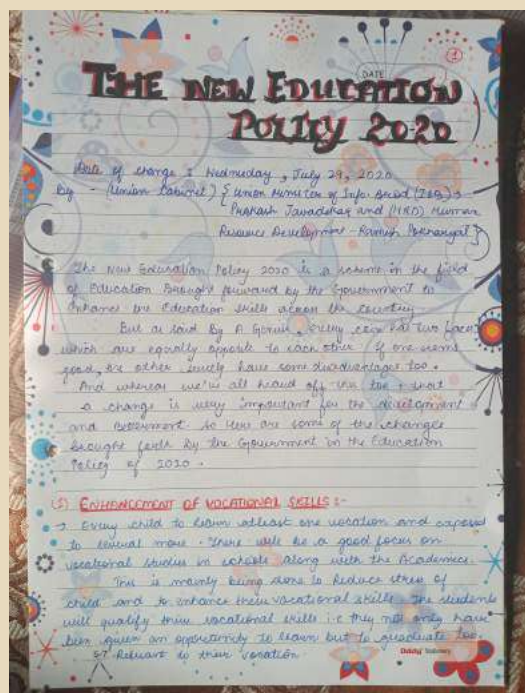 1
DATE
THE NEW EDUCATION
POLICY 2020
Date of change : Wednesday, July 29, 2020
by - (Union Cabinet) { Union Minister of Info. Broad (I&B) →
Prakash Javadekar and (HRD) Human
Resource Development - Ramesh Pokhariyal }
The New Education Policy 2020 is a scheme in the field
of Education Brought forward by the Government to
enhance the Education skills across the country
But as said by A Genius, every coin has two faces
which are equally opposite to each other. If one seems
good, the other surely have some disadvantages too.
And whereas we've all heard off this too, that
a change is very important for the development
and betterment. So Here are some of the changes
brought forth by the Government in the Education
Policy of 2020.
ENHANCEMENT OF VOCATIONAL SKILLS :-
→ Every child to learn atleast one vocation and exposed
to several more. There will be a good focus on
vocational studies in schools along with the Academics.
This is mainly being done to Reduce stress of
child and to enhance their vocational skills. The students
will qualify their vocational skills i.e they not only have
been given an opportunity to learn but to graduate too.
Relevant to their vocation.
Oddy Stationery